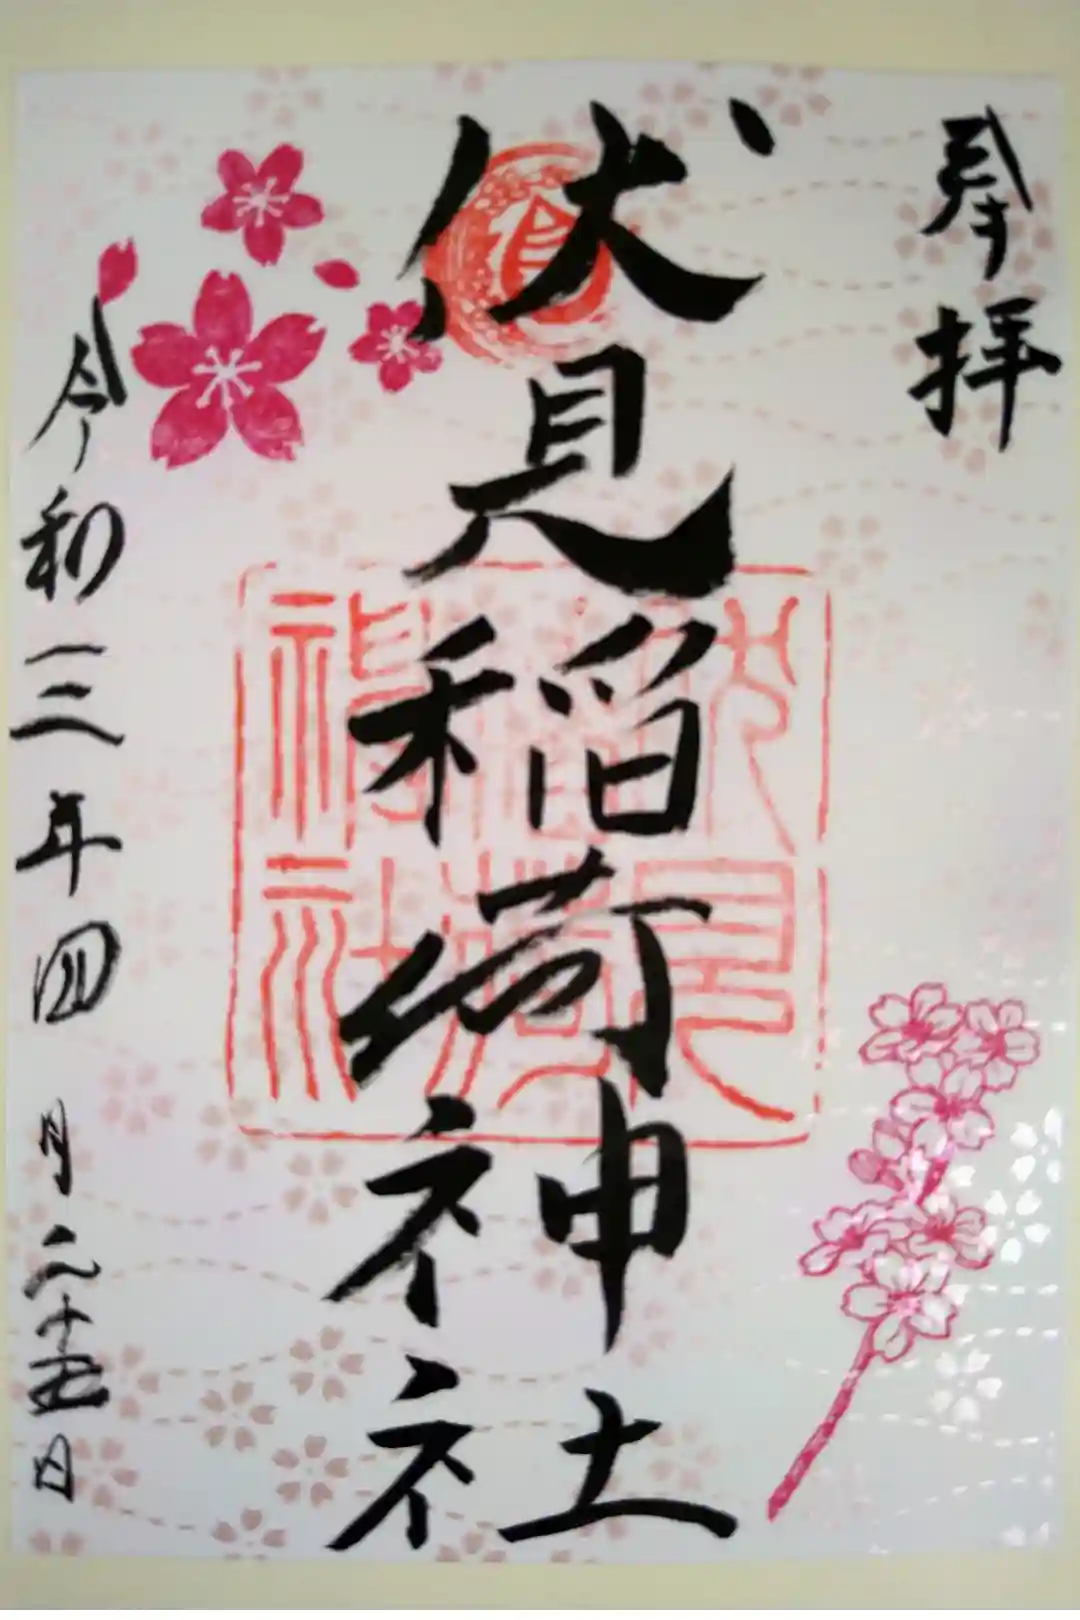 奉拝
伏見稲荷神社
伏見
稲荷
神社
令和三年四月二十五日